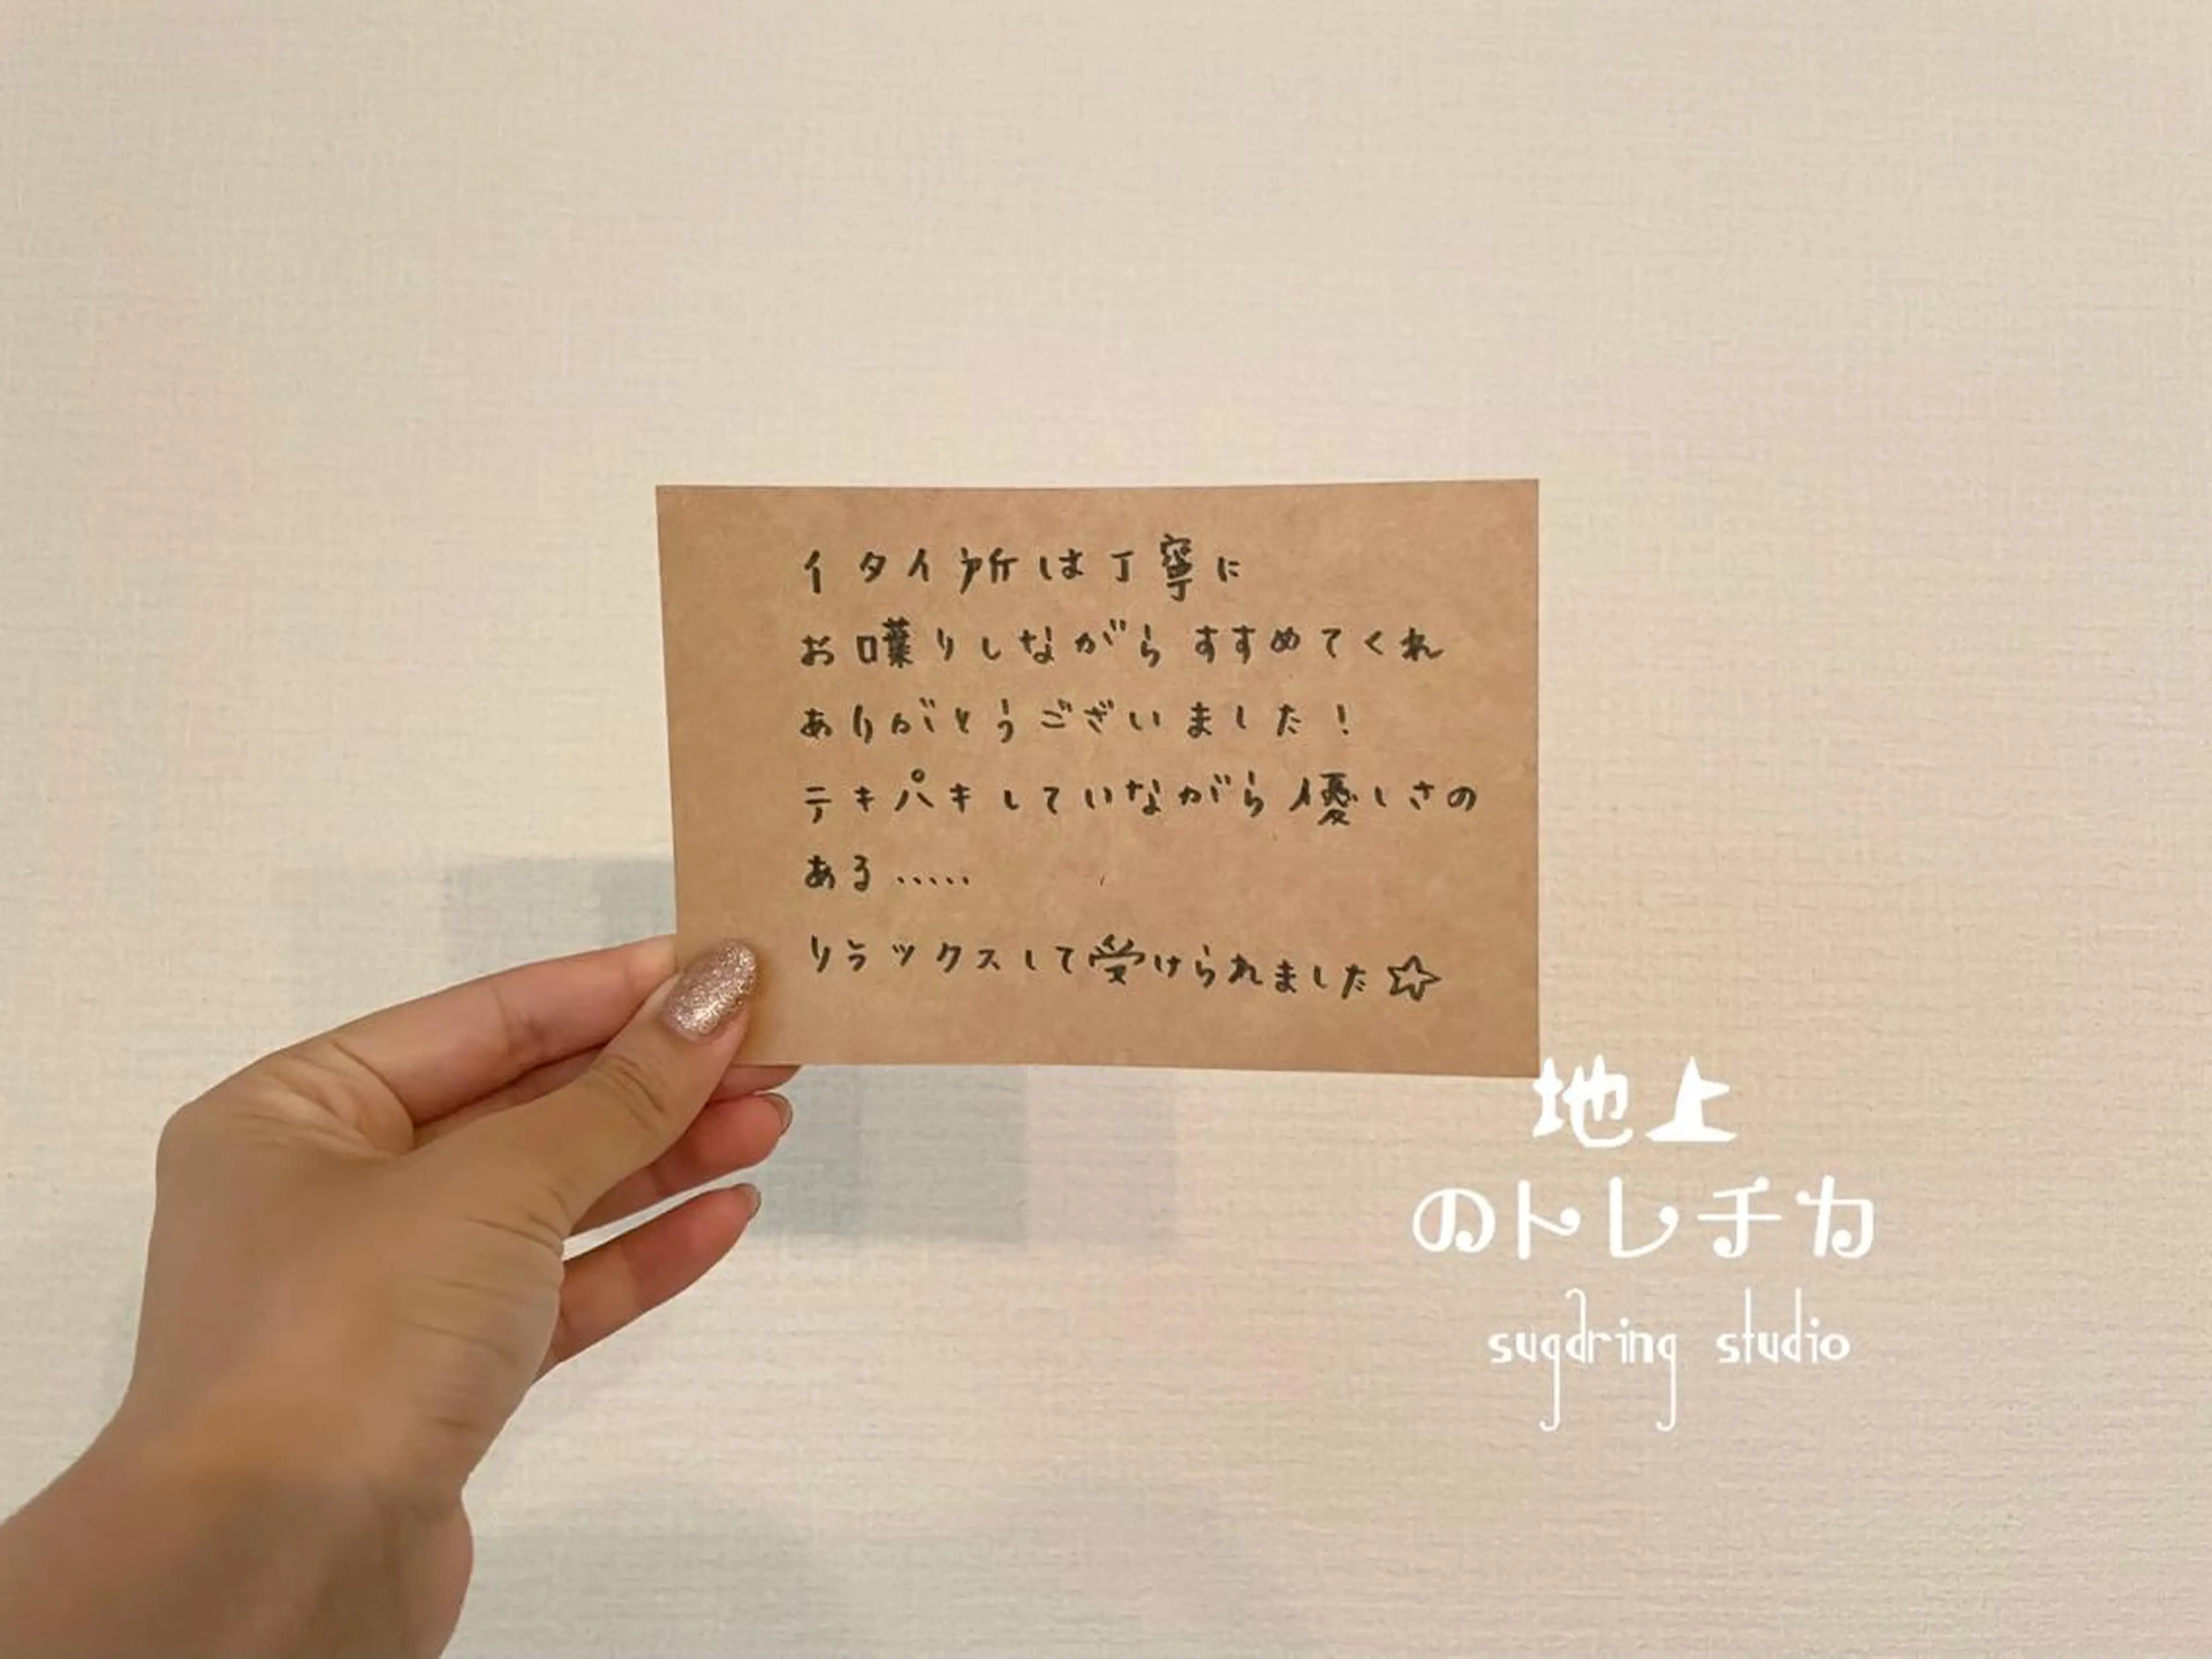 イタイ所は丁寧に
お喋りしながらすすめてくれ
ありがとうございました!
テキパキしていながら優しさの
ある.....
リラックスして受けられました☆
地上
のトレチカ
sugaring studio